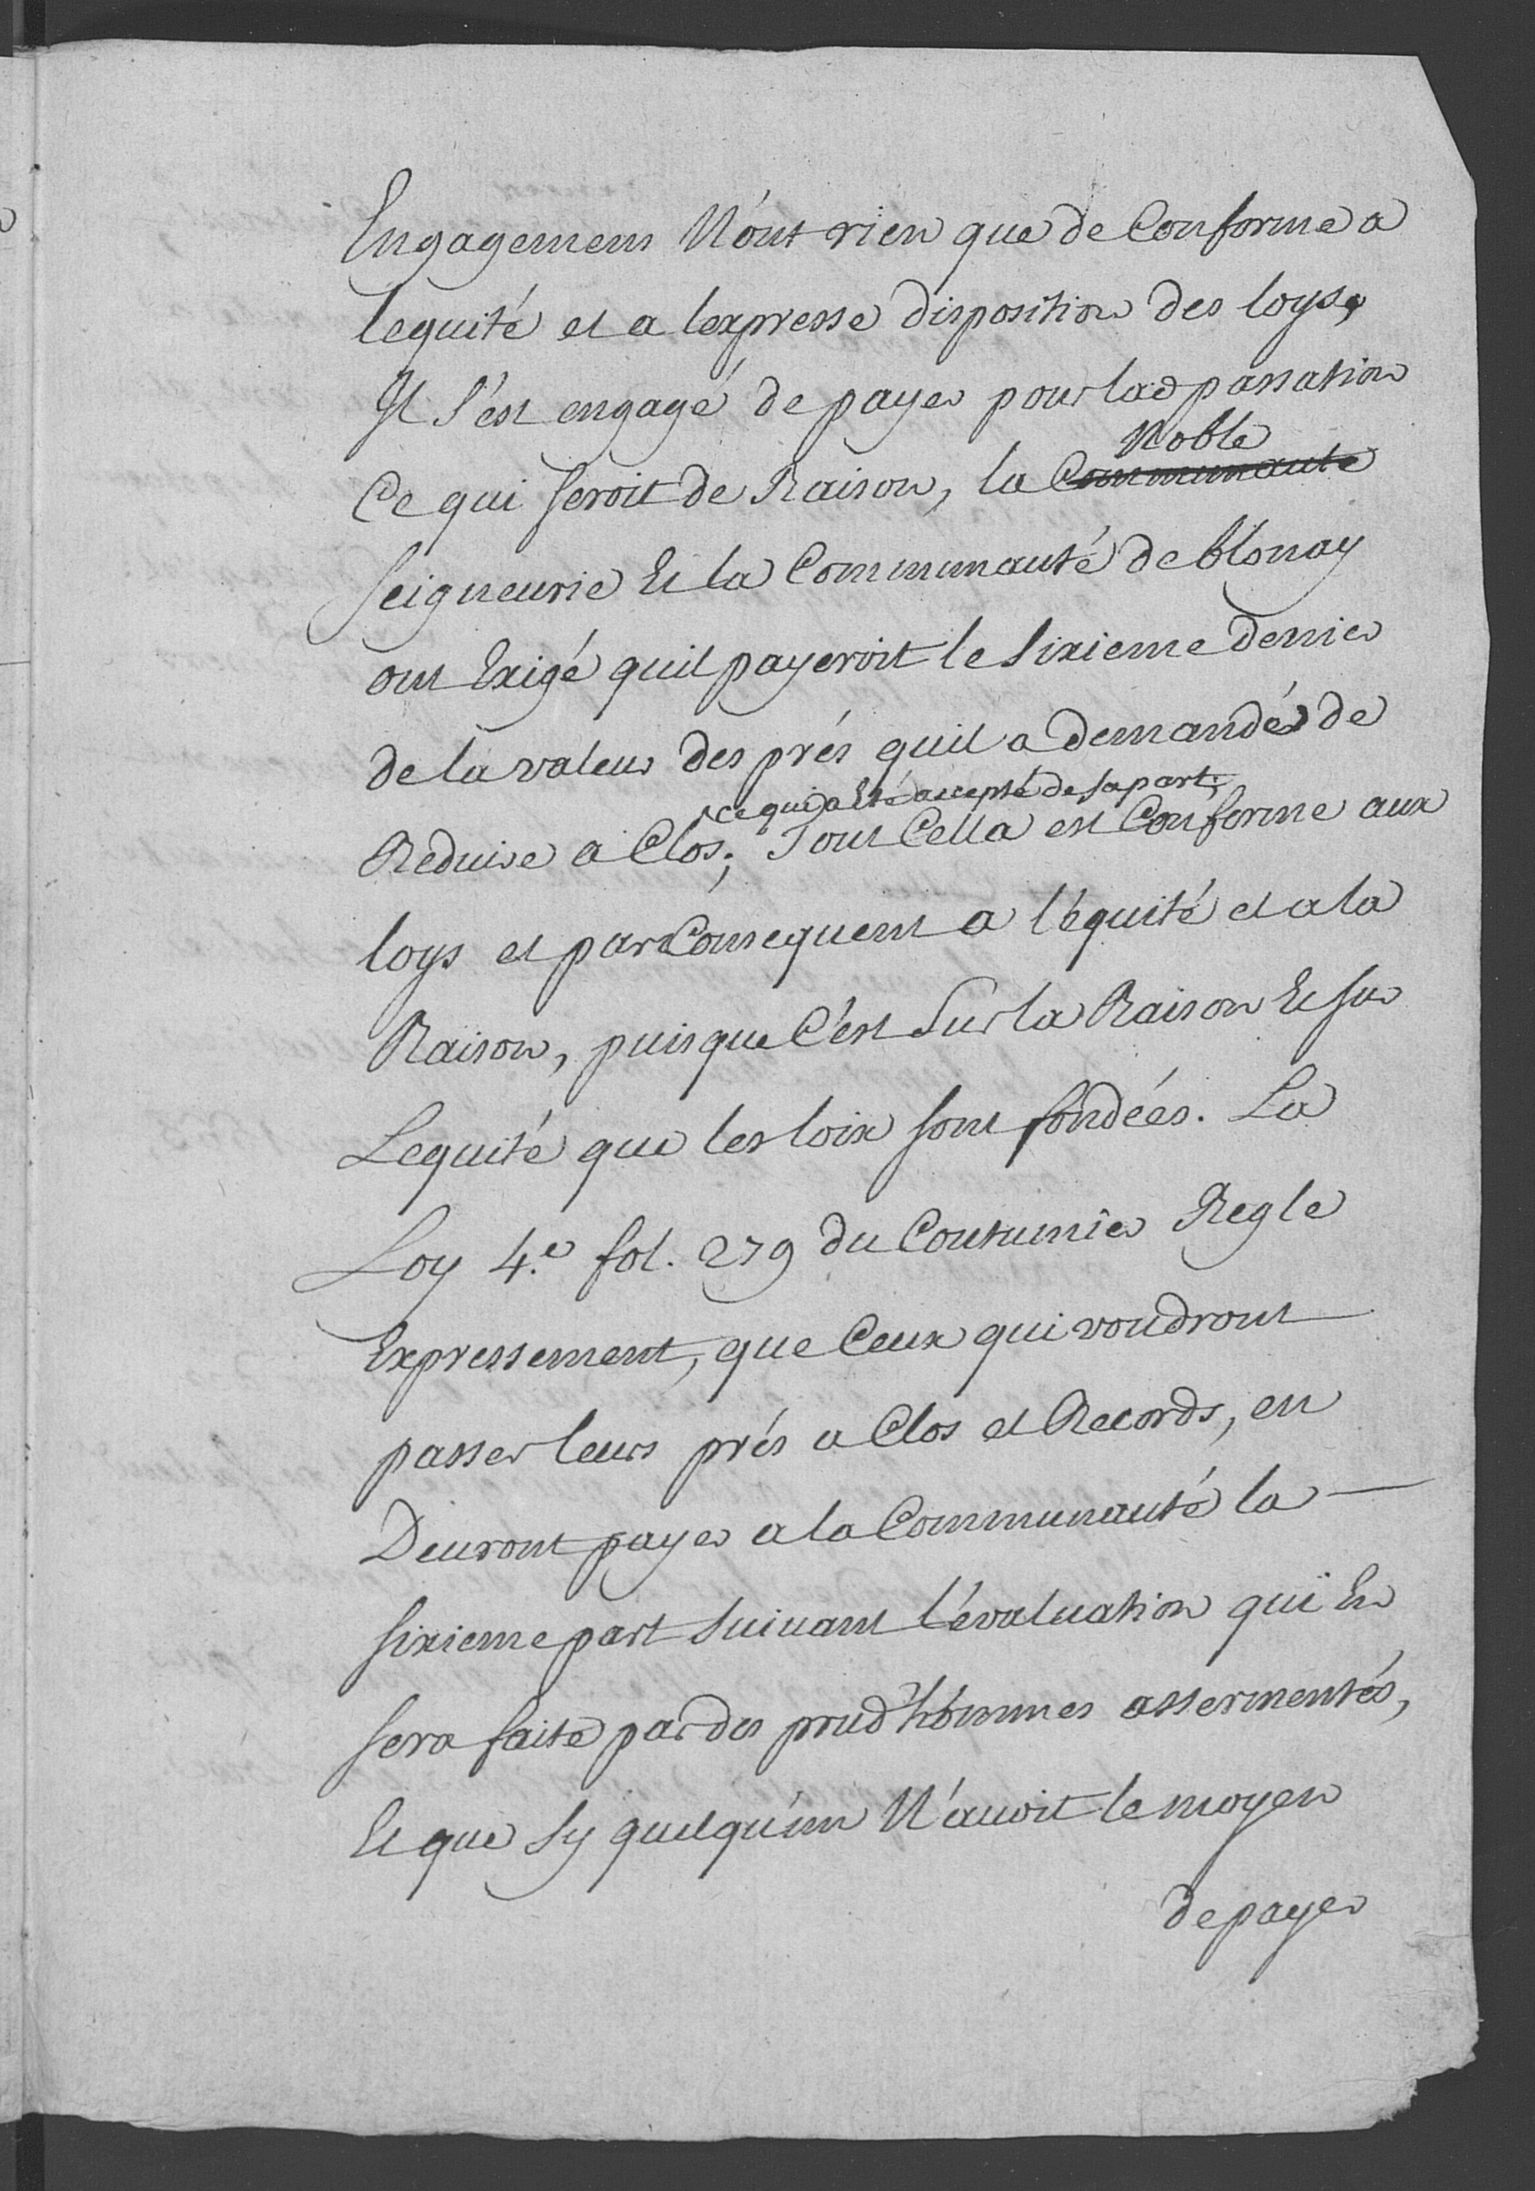 Engagemens N'ont rien que de Conforme a
lequité et a lexpresse disposition des loys,
Il s'est engagé de payer pour lad passation
Noble
Ce qui seroit de Raison, la Communauté
seigneurie Et la Communauté de blonay
ont Exigé quil payeroit le sixieme denier
de la valeur des prés quil a demandés de
ce qui a Eté accepté de sa part;
Reduire a Clos; Tout Cella est Conforme aux
loys et par Consequent a l'équité et a la
Raison, puisque C'est Sur la Raison Et sur
Lequité que les loix sont fondées. La
Loy 4.e fol. 279 du Coutumier Regle
Expressement, que Ceux qui voudront
passer leurs prés a Clos et Records, en
Deuront payer a la Communauté la —
sixieme part suivant l'évaluation qui En
sera faite par des prud'hommes assermentés,
Et que sy quelqu'un N'auoit le moyen
de payer